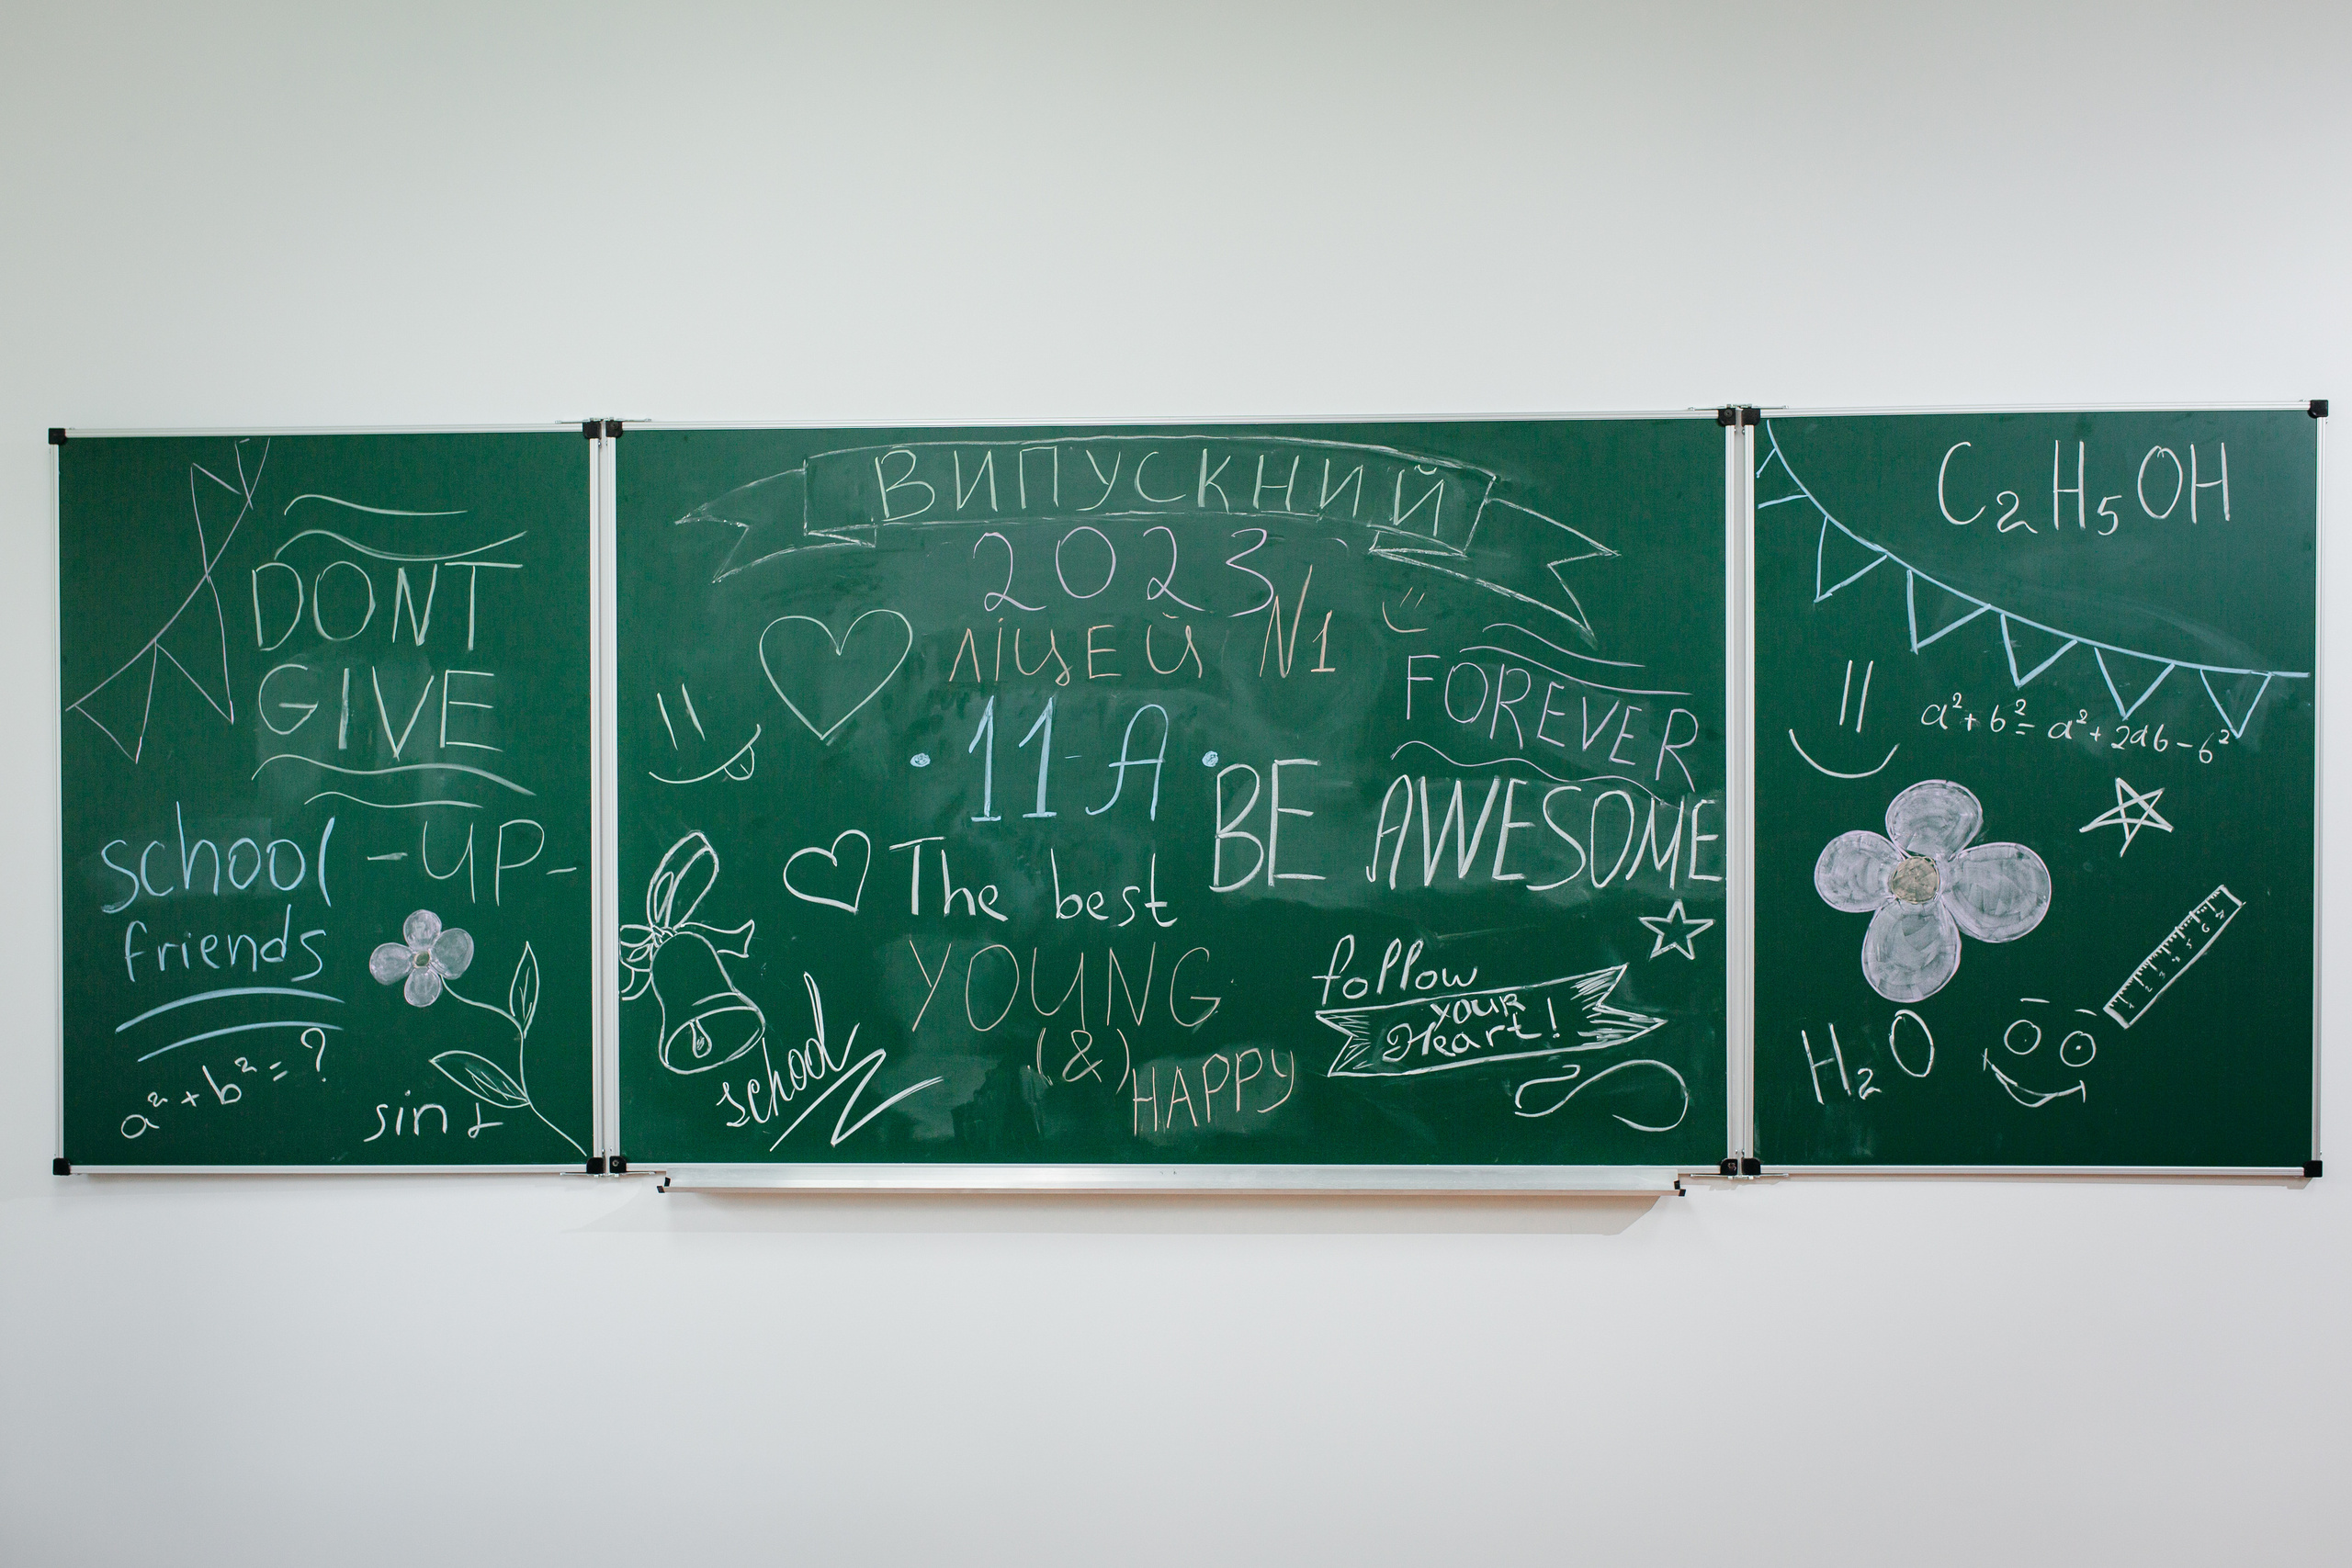 DONT
GIVE
-UP-
school
friends
a² + b² = ?
sin α
ВИПУСКНИЙ
2023
ЛІЦЕЙ N1
11-А
FOREVER
BE AWESOME
The best
YOUNG
(&)
HAPPY
school
follow
your
Heart!
C₂H₅OH
a² + b² = a² + 2ab - b²
H₂O